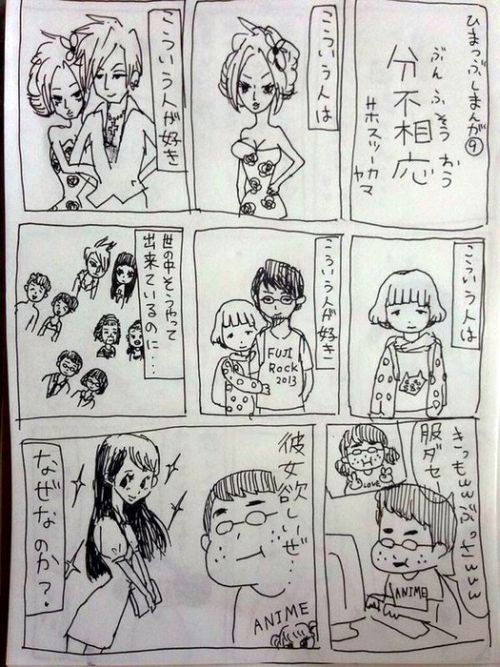 ひまつぶしまんが⑨
ぶんふそうおう
分不相応
#ホスツーカヤマ
こういう人は
こういう人が好き
こういう人は
こういう人が好き
FUJI
Rock
2013
世の中そうやって
出来ているのに…
きっもwwぶっさwww
服ダセー
LOVE
ANIME
彼女欲しいぜ
ANIME
なぜなのか?